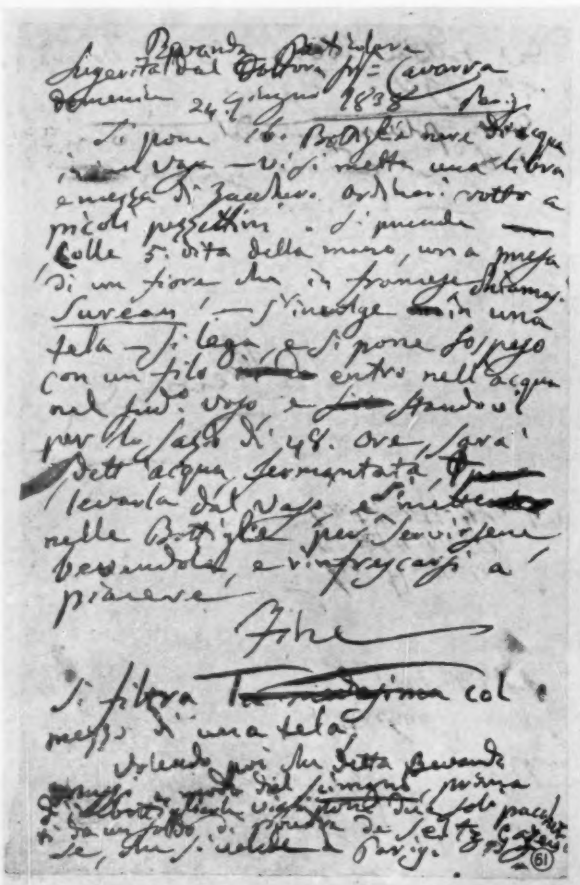 Bevanda Particolare
Sugerita dal Dottore Cavarra
domenica 24 Giugno 1838
Si pone Bottiglie nere di acqua
in un vaso – vi si metta una libra
e mezza di Zucchero ordinari rotto a
picoli pezzettini. Si prende
Colle 5. dita della mano, una presa
di un fiore che in francese chiamasi
Sureau, – s'involge in una
tela – si lega, e si pone sospeso
con un filo entro nell'acqua
nel sud.º vaso, e standovi
per lo spazio di 48. ore, sarà
dett'acqua fermentata,
levarla dal vaso e si mette
nelle Bottiglie per servirsene
bevendola, e rinfrescarsi a
piacere
Fine
Si filtra la medesima col
mezzo di una tela,
Volendo poi che detta Bevanda
modo del prima
d'imbottigliarla due sole
di un soldo di de Seltz
che si vende a Parigi.
61